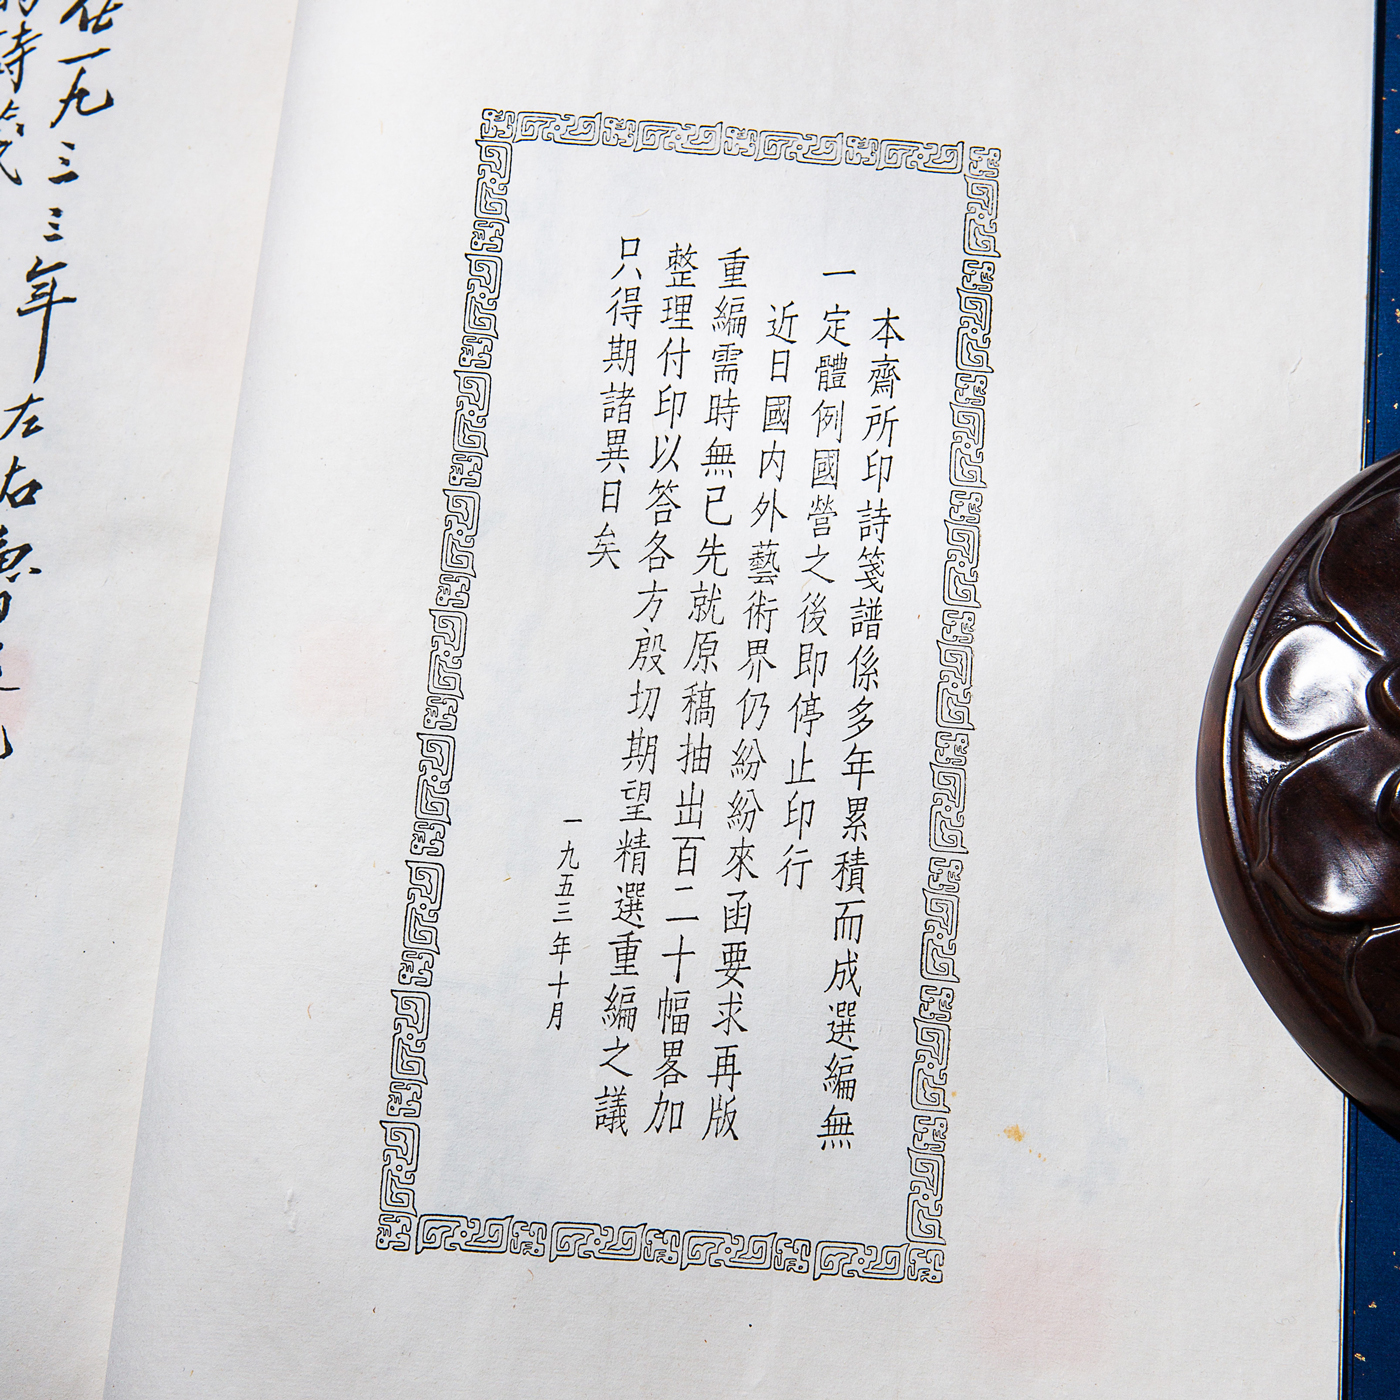 本齋所印詩箋譜係多年累積而成選編無
一定體例國營之後即停止印行
近日國内外藝術界仍紛紛來函要求再版
重編需時無已先就原稿抽出百二十幅畧加
整理付印以答各方殷切期望精選重編之議
只得期諸異日矣
一九五三年十月
一九三三年左右
詩